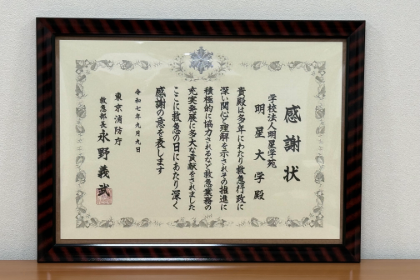 感謝状
学校法人明星学苑
明星大学殿
貴殿は多年にわたり救急行政に
深い関心と理解を示されその推進に
積極的に協力されるなど救急業務の
充実発展に多大な貢献をされました
ここに救急の日にあたり深く
感謝の意を表します
令和七年九月九日
東京消防庁
救急部長 永野義武